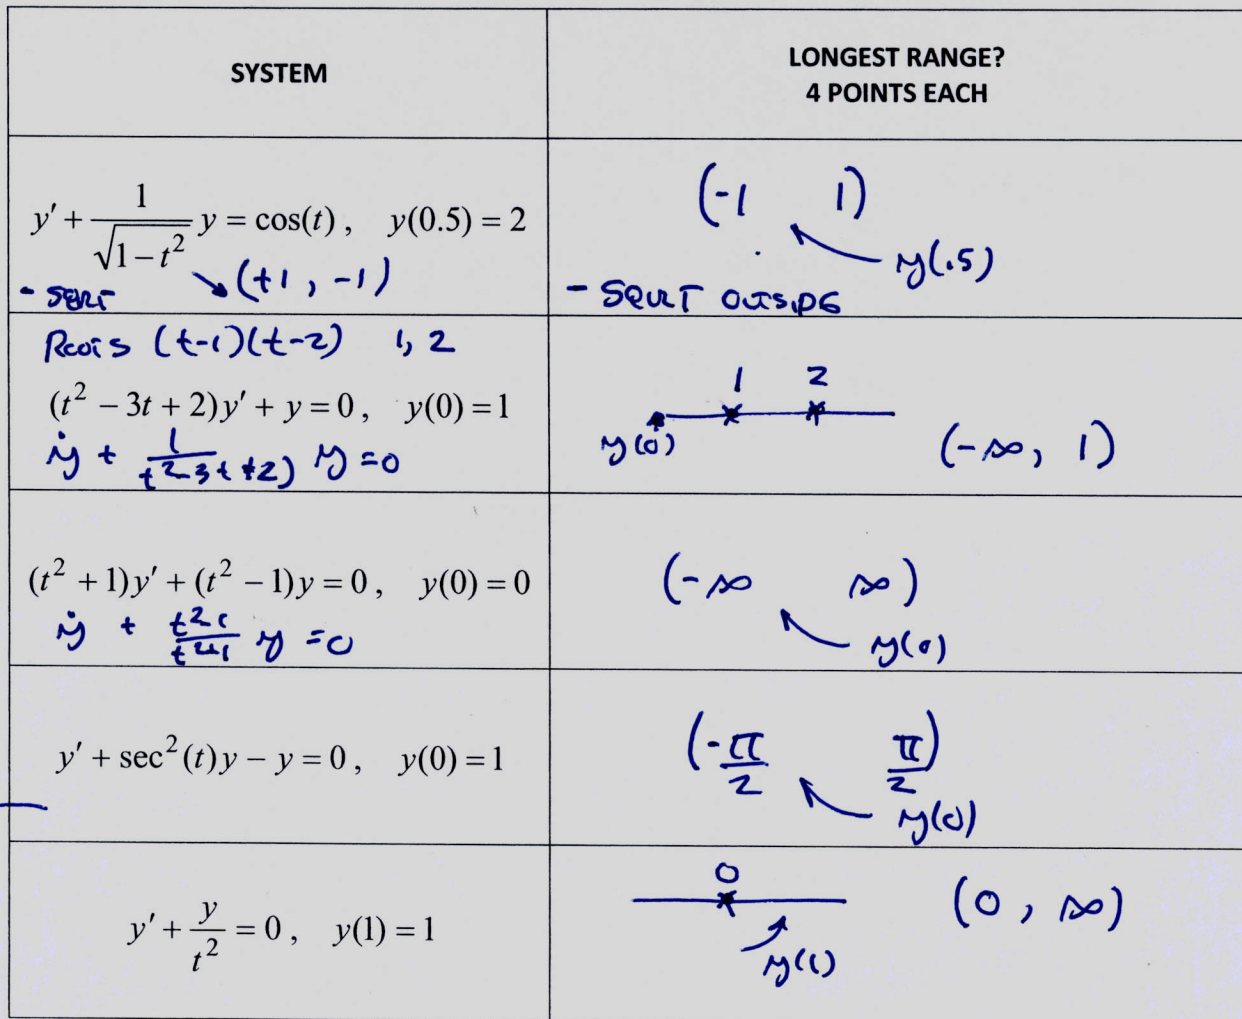 SYSTEM
LONGEST RANGE?
4 POINTS EACH
y' + 1/√(1 − t²) y = cos(t), y(0.5) = 2
↘ (+1, -1)
- SQRT
(-1 1)
y(.5)
- SQURT OUTSIDE
Roots (t-1)(t-2) 1, 2
(t² − 3t + 2)y' + y = 0, y(0) = 1
ẏ + 1/(t²-3t+2) y = 0
1 2
y(0)
(-∞, 1)
(t² + 1)y' + (t² − 1)y = 0, y(0) = 0
ẏ + t²-1/t²+1 y = 0
(-∞ ∞)
y(0)
y' + sec²(t)y − y = 0, y(0) = 1
(-π/2 π/2)
y(0)
y' + y/t² = 0, y(1) = 1
0
y(1)
(0, ∞)